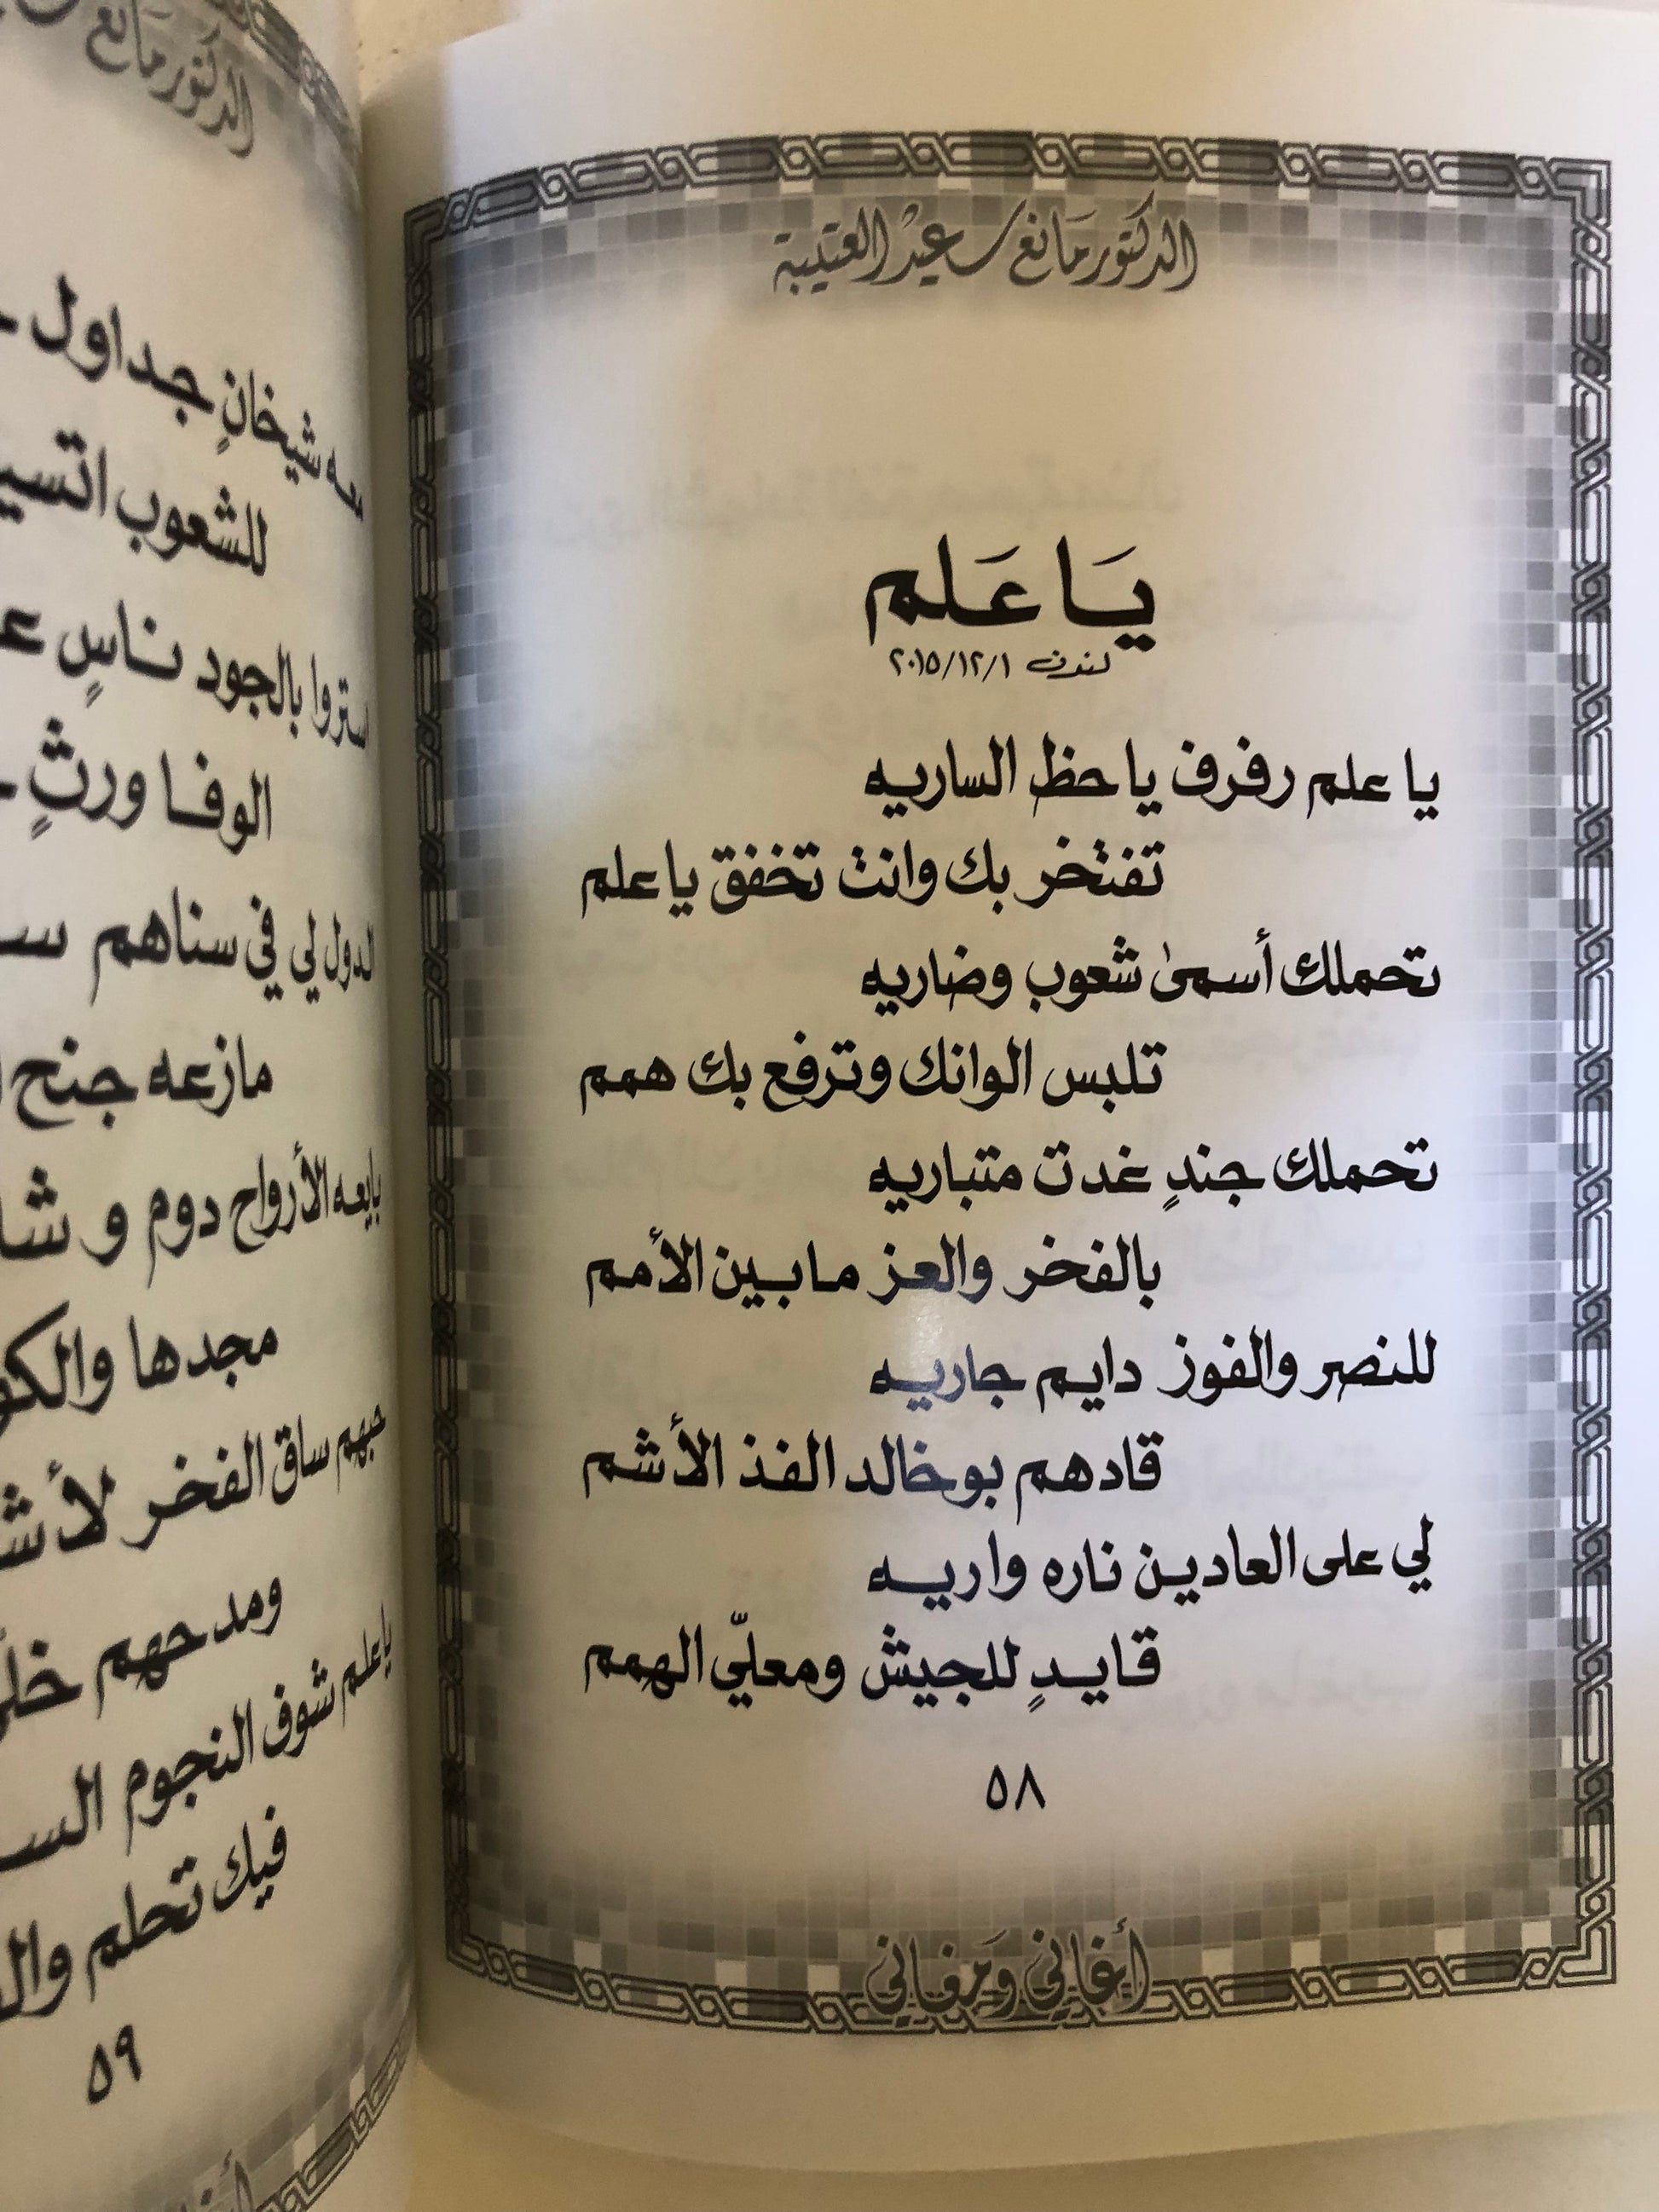 الدكتور مانع سعيد العتيبة
يَا عَلم
لندن ٢٠١٥/١٢/١
يا علم رفرف يا حظ الساريه
تفتخر بك وانت تخفق يا علم
تحملك أسمى شعوب وضاريه
تلبس الوانك وترفع بك همم
تحملك جندٍ غدت متباريه
بالفخر والعز مابين الأمم
للنصر والفوز دايم جاريه
قادهم بوخالد الفذ الأشم
لي على العادين ناره واريه
قايدٍ للجيش ومعلّي الهمم
٥٨
أغاني ومغاني
الدكتور مانع
شيخانٍ جداول
للشعوب
بالجود ناسٍ
الوفا ورثٍ
الدول لي في سناهم
مازعه جنح
بايعه الأرواح دوم و
مجدها
حبهم ساق الفخر
ومدحهم
ياعلم شوف النجوم
فيك تحلم
٥٩